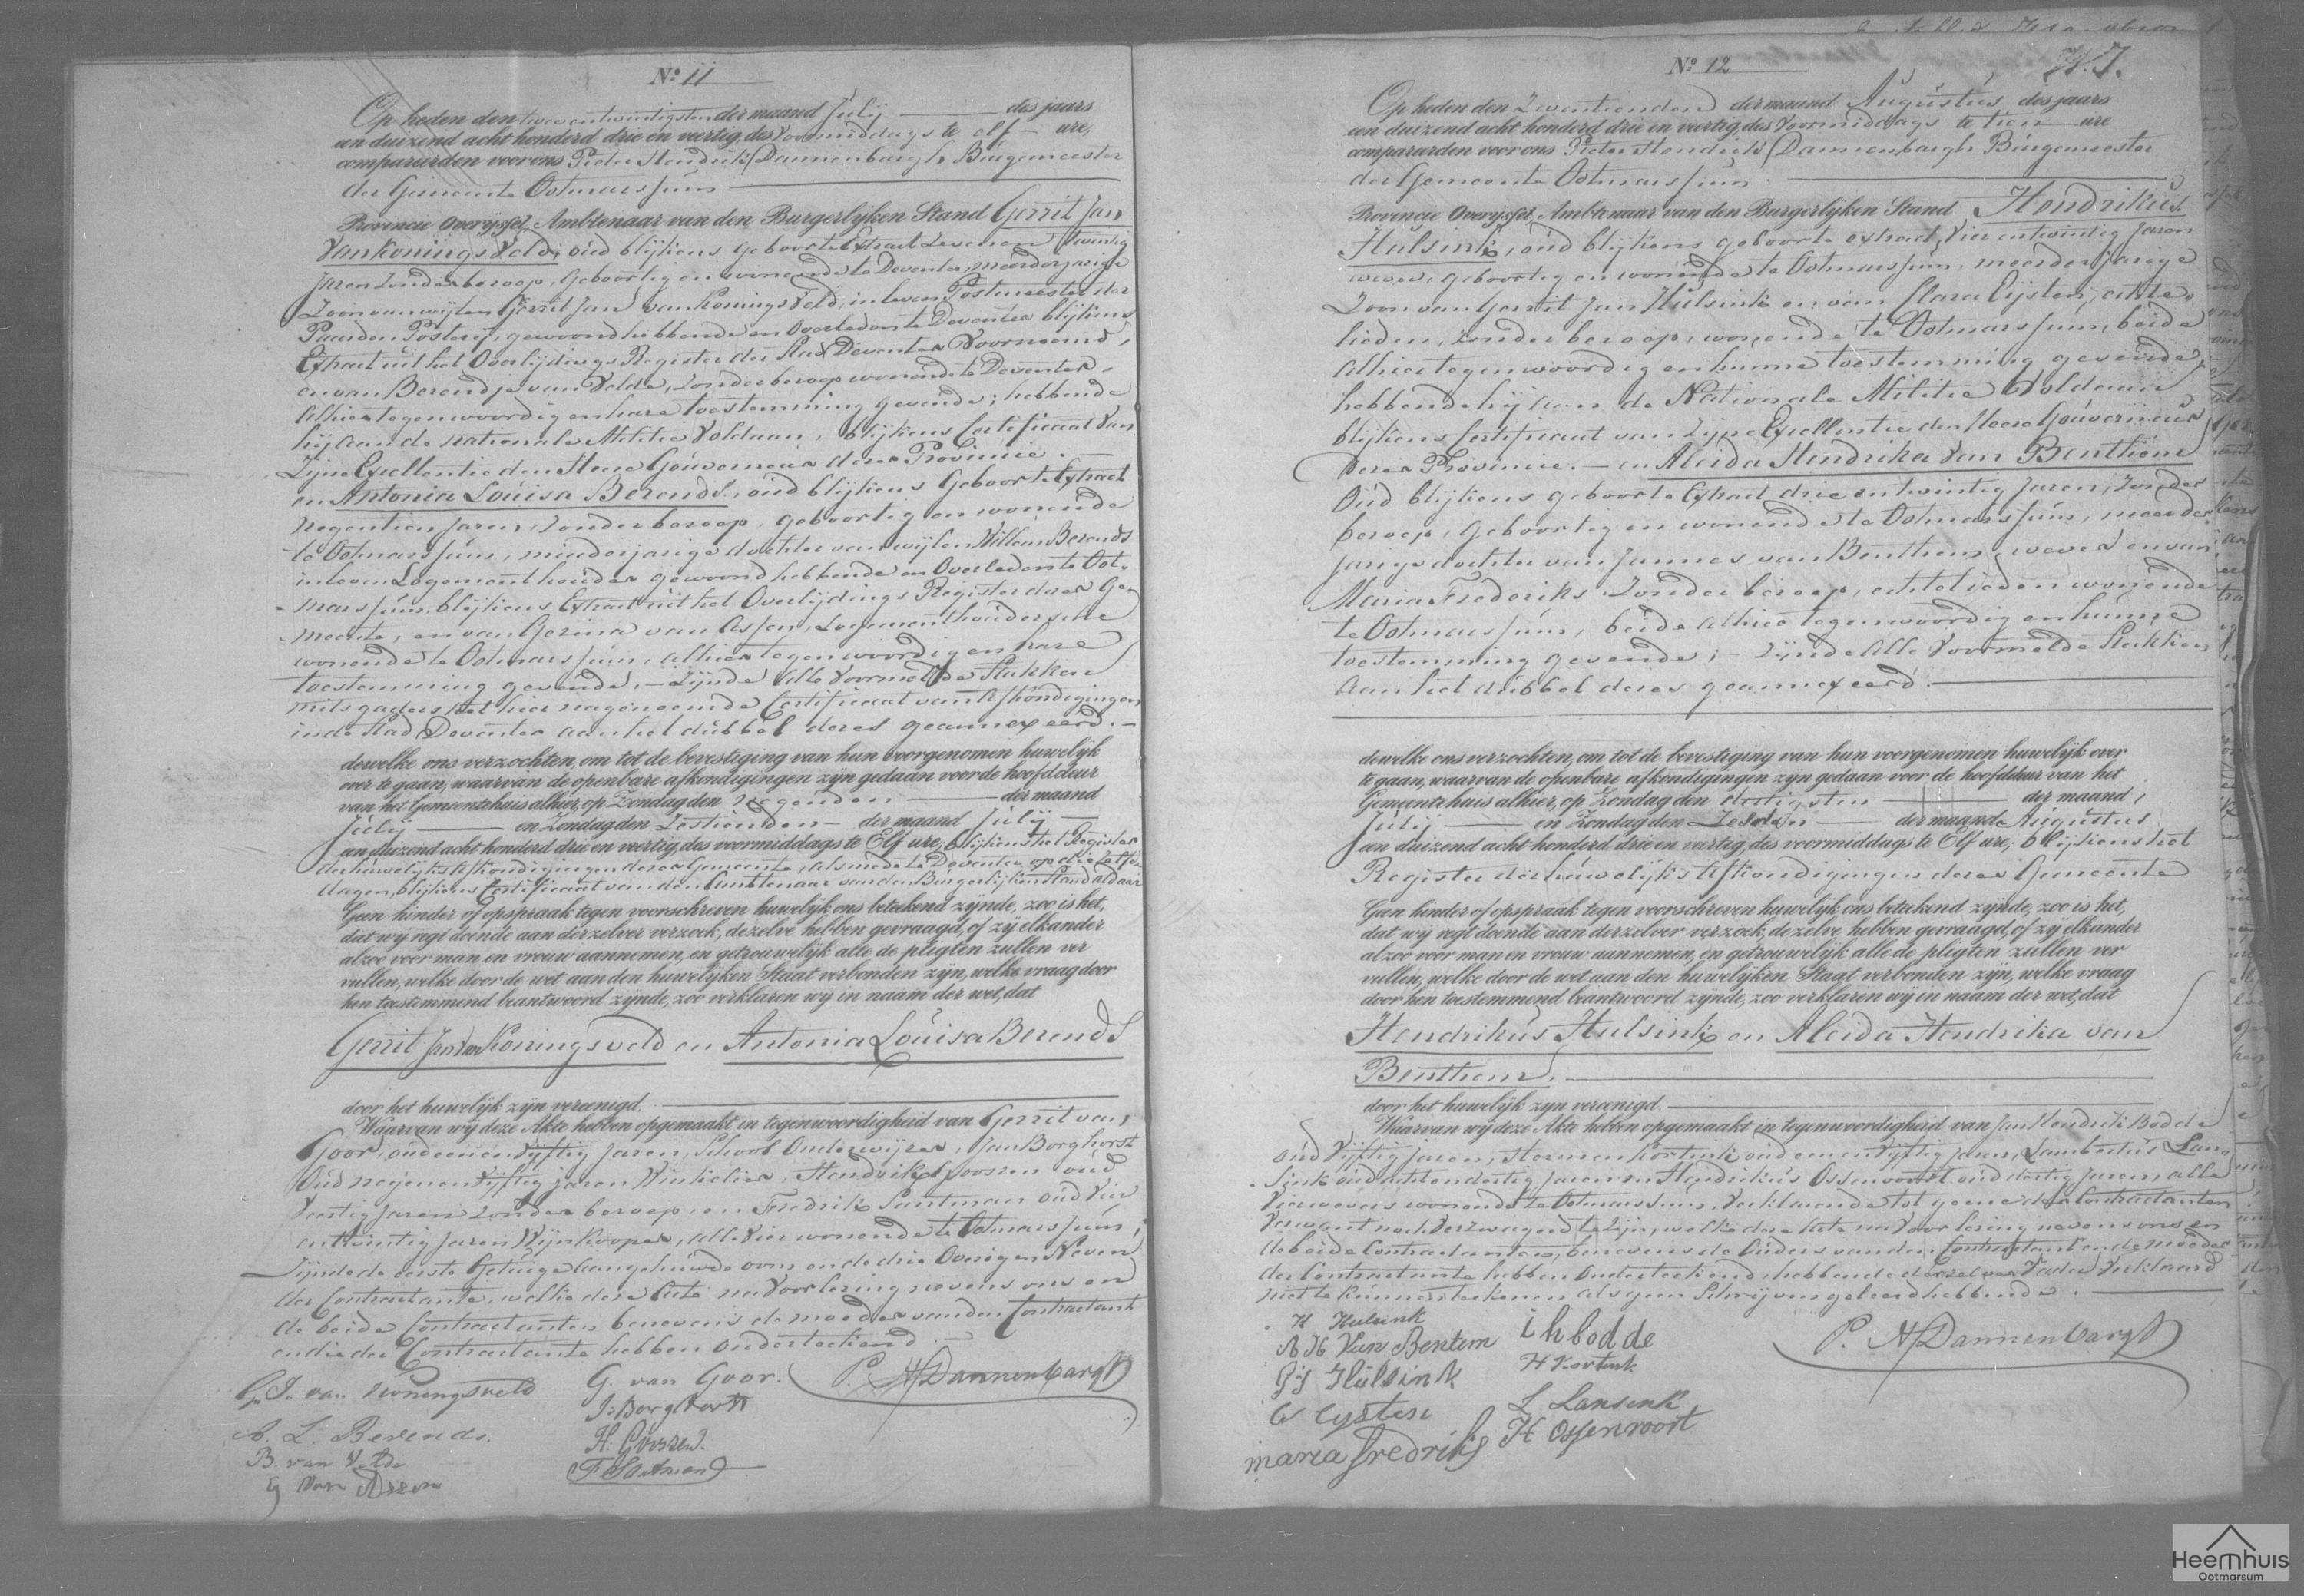 No. 11
Op heden den twee en twintigsten der maand Julij des jaars
een duizend acht honderd drie en veertig, des Voormiddags te elf ure,
compareerden voor ons Pieter Hendrik Dannenbargh Burgemeester
der Gemeente Ootmarssum
Provincie Overijssel, Ambtenaar van den Burgerlijken Stand Gerrit Jan
van Konings Veld, oud blijkens geboorte Extract zeven en twintig
Jaren zonder beroep, geboortig en wonende te Deventer, meerderjarige
Zoon van wijlen Gerrit Jan van Konings Veld, in leven Postmeester der
Paarden Posterij, gewoond hebbende en Overleden te Deventer blijkens
Extract uit het Overlijdings Register der Stad Deventer Voornoemd,
en van Berendje van Velde, zonder beroep wonende te Deventer,
alhier tegenwoordig en hare toestemming gevende; hebbende
hij aan de nationale Militie Voldaan, blijkens Certificaat van
Zijne Excellentie den Heere Gouverneur dezer Provincie.
en Antonia Louisa Berends, oud blijkens Geboorte Extract
negentien jaren, zonder beroep, geboortig en wonende
te Ootmarssum, minderjarige dochter van wijlen Willem Berends
in leven Logementhouder gewoond hebbende en Overleden te Oot-
marssum, blijkens Extract uit het Overlijdings Register dezer Ge-
meente, en van Gezina van Assen, Logementhoudersche
wonende te Ootmarssum, alhier tegenwoordig en hare
toestemming gevende. Zijnde alle Voormelde Stukken
mitsgaders het hier nagenoemde Certificaat van Afkondigingen
in de Stad Deventer aan het dubbel dezes geannexeerd.
dewelke ons verzochten, om tot de bevestiging van hun voorgenomen huwelijk
over te gaan, waarvan de openbare afkondigingen zijn gedaan voor de hoofddeur
van het Gemeentehuis alhier, op Zondag den negenden der maand
Julij en Zondag den Zestienden der maand Julij
een duizend acht honderd drie en veertig, des voormiddags te Elf ure; blijkens het Register
der huwelijks Afkondigingen dezer Gemeente, alsmede te Deventer op die zelfde
dagen, blijkens Certificaat van den Ambtenaar van den Burgerlijken Stand aldaar
Geen hinder of opspraak tegen voorschreven huwelijk ons betekend zijnde, zoo is het,
dat wij regt doende aan derzelver verzoek, dezelve hebben gevraagd, of zij elkander
alzoo voor man en vrouw aannemen, en getrouwelijk alle de pligten zullen ver
vullen, welke door de wet aan den huwelijken Staat verbonden zijn, welke vraag door
hen toestemmend beantwoord zijnde, zoo verklaren wij in naam der wet, dat
Gerrit Jan van Koningsveld en Antonia Louisa Berends
door het huwelijk zijn vereenigd.
Waarvan wij deze Akte hebben opgemaakt in tegenwoordigheid van Gerrit van
Goor, oud een en Vijftig Jaren, School Onderwijzer, Jan Borghorst
Oud negen en Vijftig jaren Winkelier, Hendrik Goossen oud
Veertig Jaren zonder beroep, en Fredrik Santman oud Vier
en twintig Jaren Wijnkooper, alle Vier wonende te Ootmarssum,
Zijnde de eerste Getuige aangehuwde oom en de drie Overigen Neven
der Contractante, welke deze Acte na Voorlezing nevens ons en
de beide Contractanten benevens de moeder van den Contractant
en die der Contractante hebben onderteekend
G. J. van Koningsveld
A. L. Berends.
B. van Velde
G van Assen
G. van Goor.
J. Borghorst
H. Goossen.
F Santman
P. H Dannenbargh
No. 12
Op heden den Zeventienden der maand Augustus des jaars
een duizend acht honderd drie en veertig, des Voormiddags te tien ure
compareerden voor ons Pieter Hendrik Dannenbargh Burgemeester
der Gemeente Ootmarssum
Provincie Overijssel, Ambtenaar van den Burgerlijken Stand Hendrikus
Hulsink, oud blijkens geboorte extract, vier en twintig Jaren
wever, geboortig en wonende te Ootmarssum, meerderjarige
Zoon van Gerrit Jan Hulsink en van Clara Eijsten, echte-
lieden, zonder beroep, wonende te Ootmarssum, beide
alhier tegenwoordig en hunne toestemming gevende;
hebbende hij aan de Nationale Militie Voldaan
blijkens Certificaat van Zijne Excellentie den Heere Gouverneur
dezer Provincie. en Aleida Hendrika van Benthem
Oud blijkens geboorte Extract drie en twintig Jaren, zonder
beroep, geboortig en wonende te Ootmarssum, meerder
jarige dochter van Jannes van Benthem, wever en van
Maria Frederiks zonder beroep, echtelieden wonende
te Ootmarssum, beide alhier tegenwoordig en hunne
toestemming gevende; Zijnde alle Voormelde Stukken
aan het dubbel dezes geannexeerd.
dewelke ons verzochten, om tot de bevestiging van hun voorgenomen huwelijk over
te gaan, waarvan de openbare afkondigingen zijn gedaan voor de hoofddeur van het
Gemeentehuis alhier, op Zondag den dertigsten der maand
Julij en Zondag den Zesden der maand Augustus
een duizend acht honderd drie en veertig, des voormiddags te Elf ure; blijkens het
Register der huwelijks Afkondigingen dezer Gemeente
Geen hinder of opspraak tegen voorschreven huwelijk ons betekend zijnde, zoo is het,
dat wij regt doende aan derzelver verzoek, dezelve hebben gevraagd, of zij elkander
alzoo voor man en vrouw aannemen, en getrouwelijk alle de pligten zullen ver
vullen, welke door de wet aan den huwelijken Staat verbonden zijn, welke vraag
door hen toestemmend beantwoord zijnde, zoo verklaren wij in naam der wet, dat
Hendrikus Hulsink en Aleida Hendrika van
Benthem.
door het huwelijk zijn vereenigd.
Waarvan wij deze Akte hebben opgemaakt in tegenwoordigheid van Jan Hendrik Bodde
oud Vijftig jaren, Hermen Kortink oud een en Vijftig jaren, Lambertus Lan-
sink oud acht en dertig Jaren en Hendrikus Ossenvoort oud dertig Jaren, alle
Vier wevers wonende te Ootmarssum, verklarende tot geene der Contractanten
Verwant noch Verzwagerd te Zijn, welke deze Acte na Voorlezing nevens ons en
de beide Contractanten, benevens de Ouders van den Contractant en de moeder
der Contractante hebben Onderteekend, hebbende derzelver Vader Verklaard
niet te kunnen teekenen als geen Schrijven geleerd hebbende.
H Hulsink
A H Van Bentem
GJ Hulsink
C Eysten
maria fredriks
i h bodde
H Kortink
L Lansink
H Ossenvoort
P. H Dannenbargh
Heemhuis
Ootmarsum